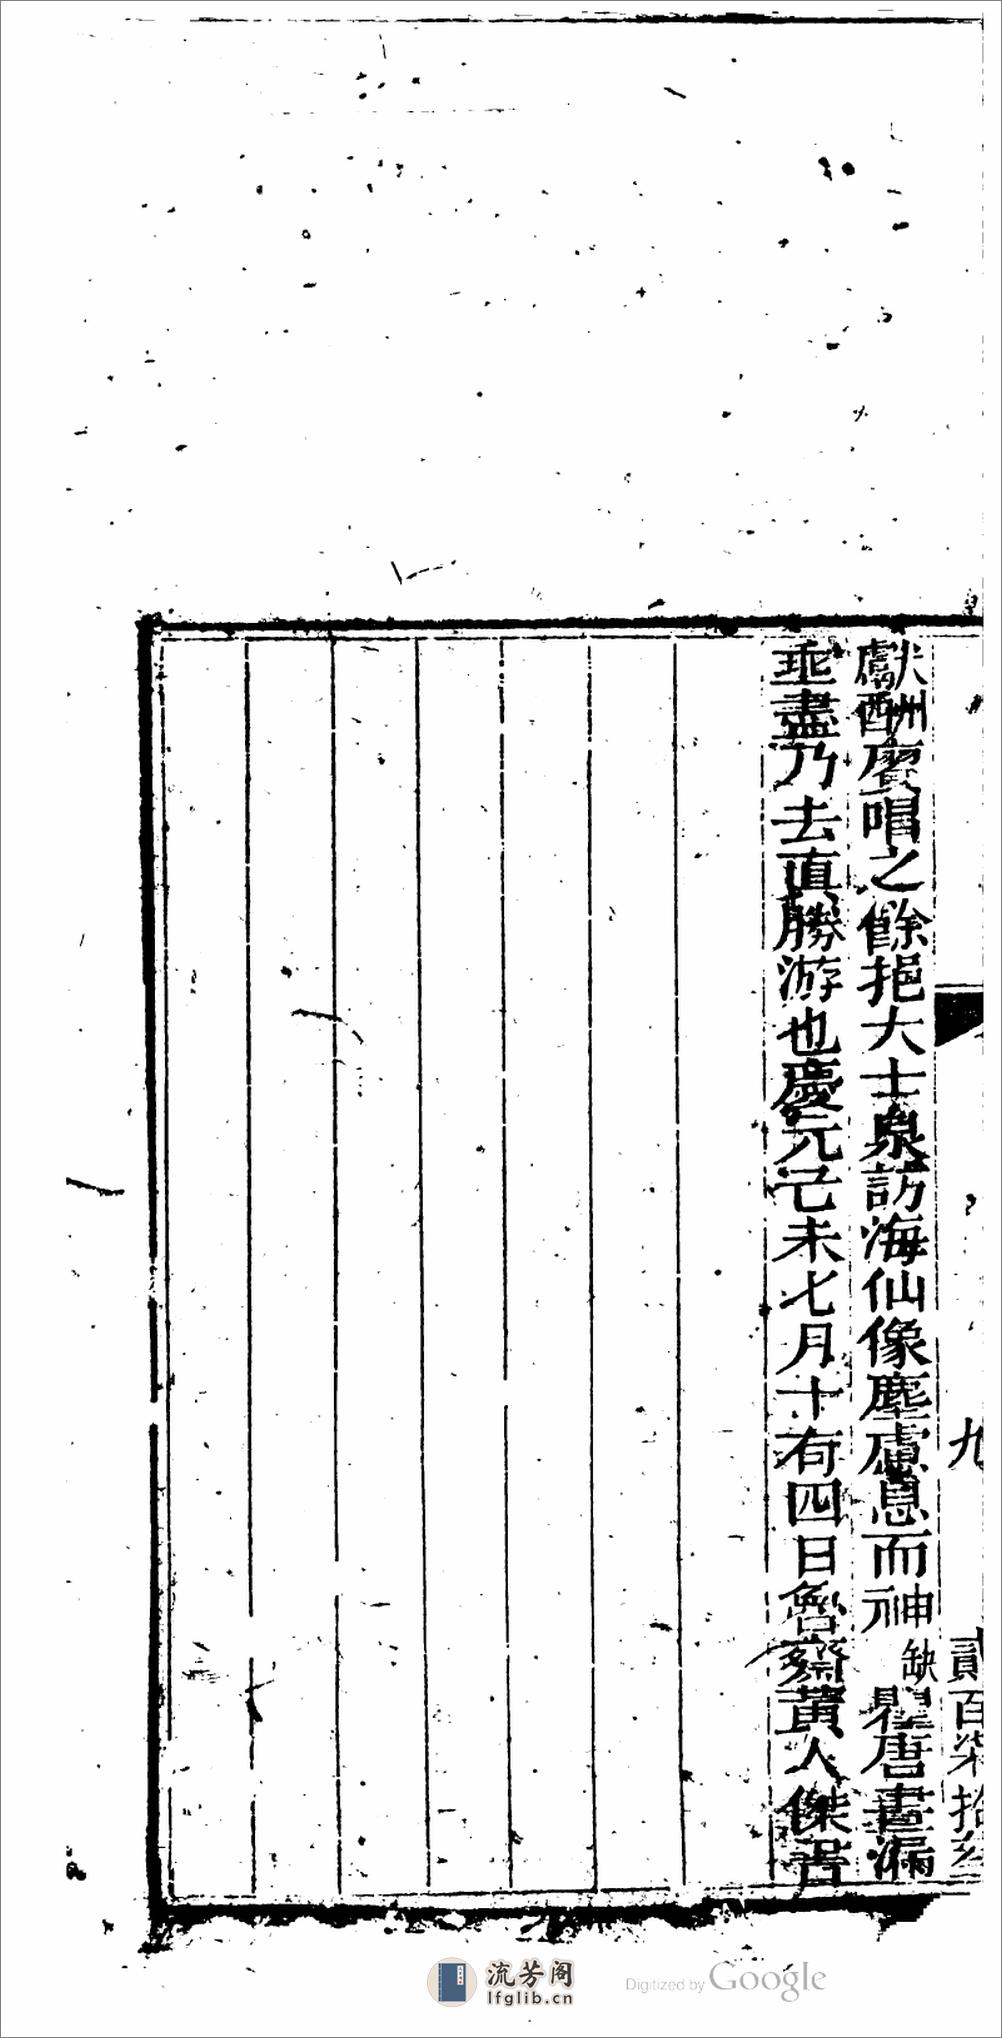 九
貳百柒拾
獻酬賡唱之餘挹大士泉訪海仙像塵慮息而神缺瞿唐晝漏
垂盡乃去直勝游也慶元己未七月十有四日魯齋黃人傑書
流芳阁
lfglib.cn
Digitized by Google